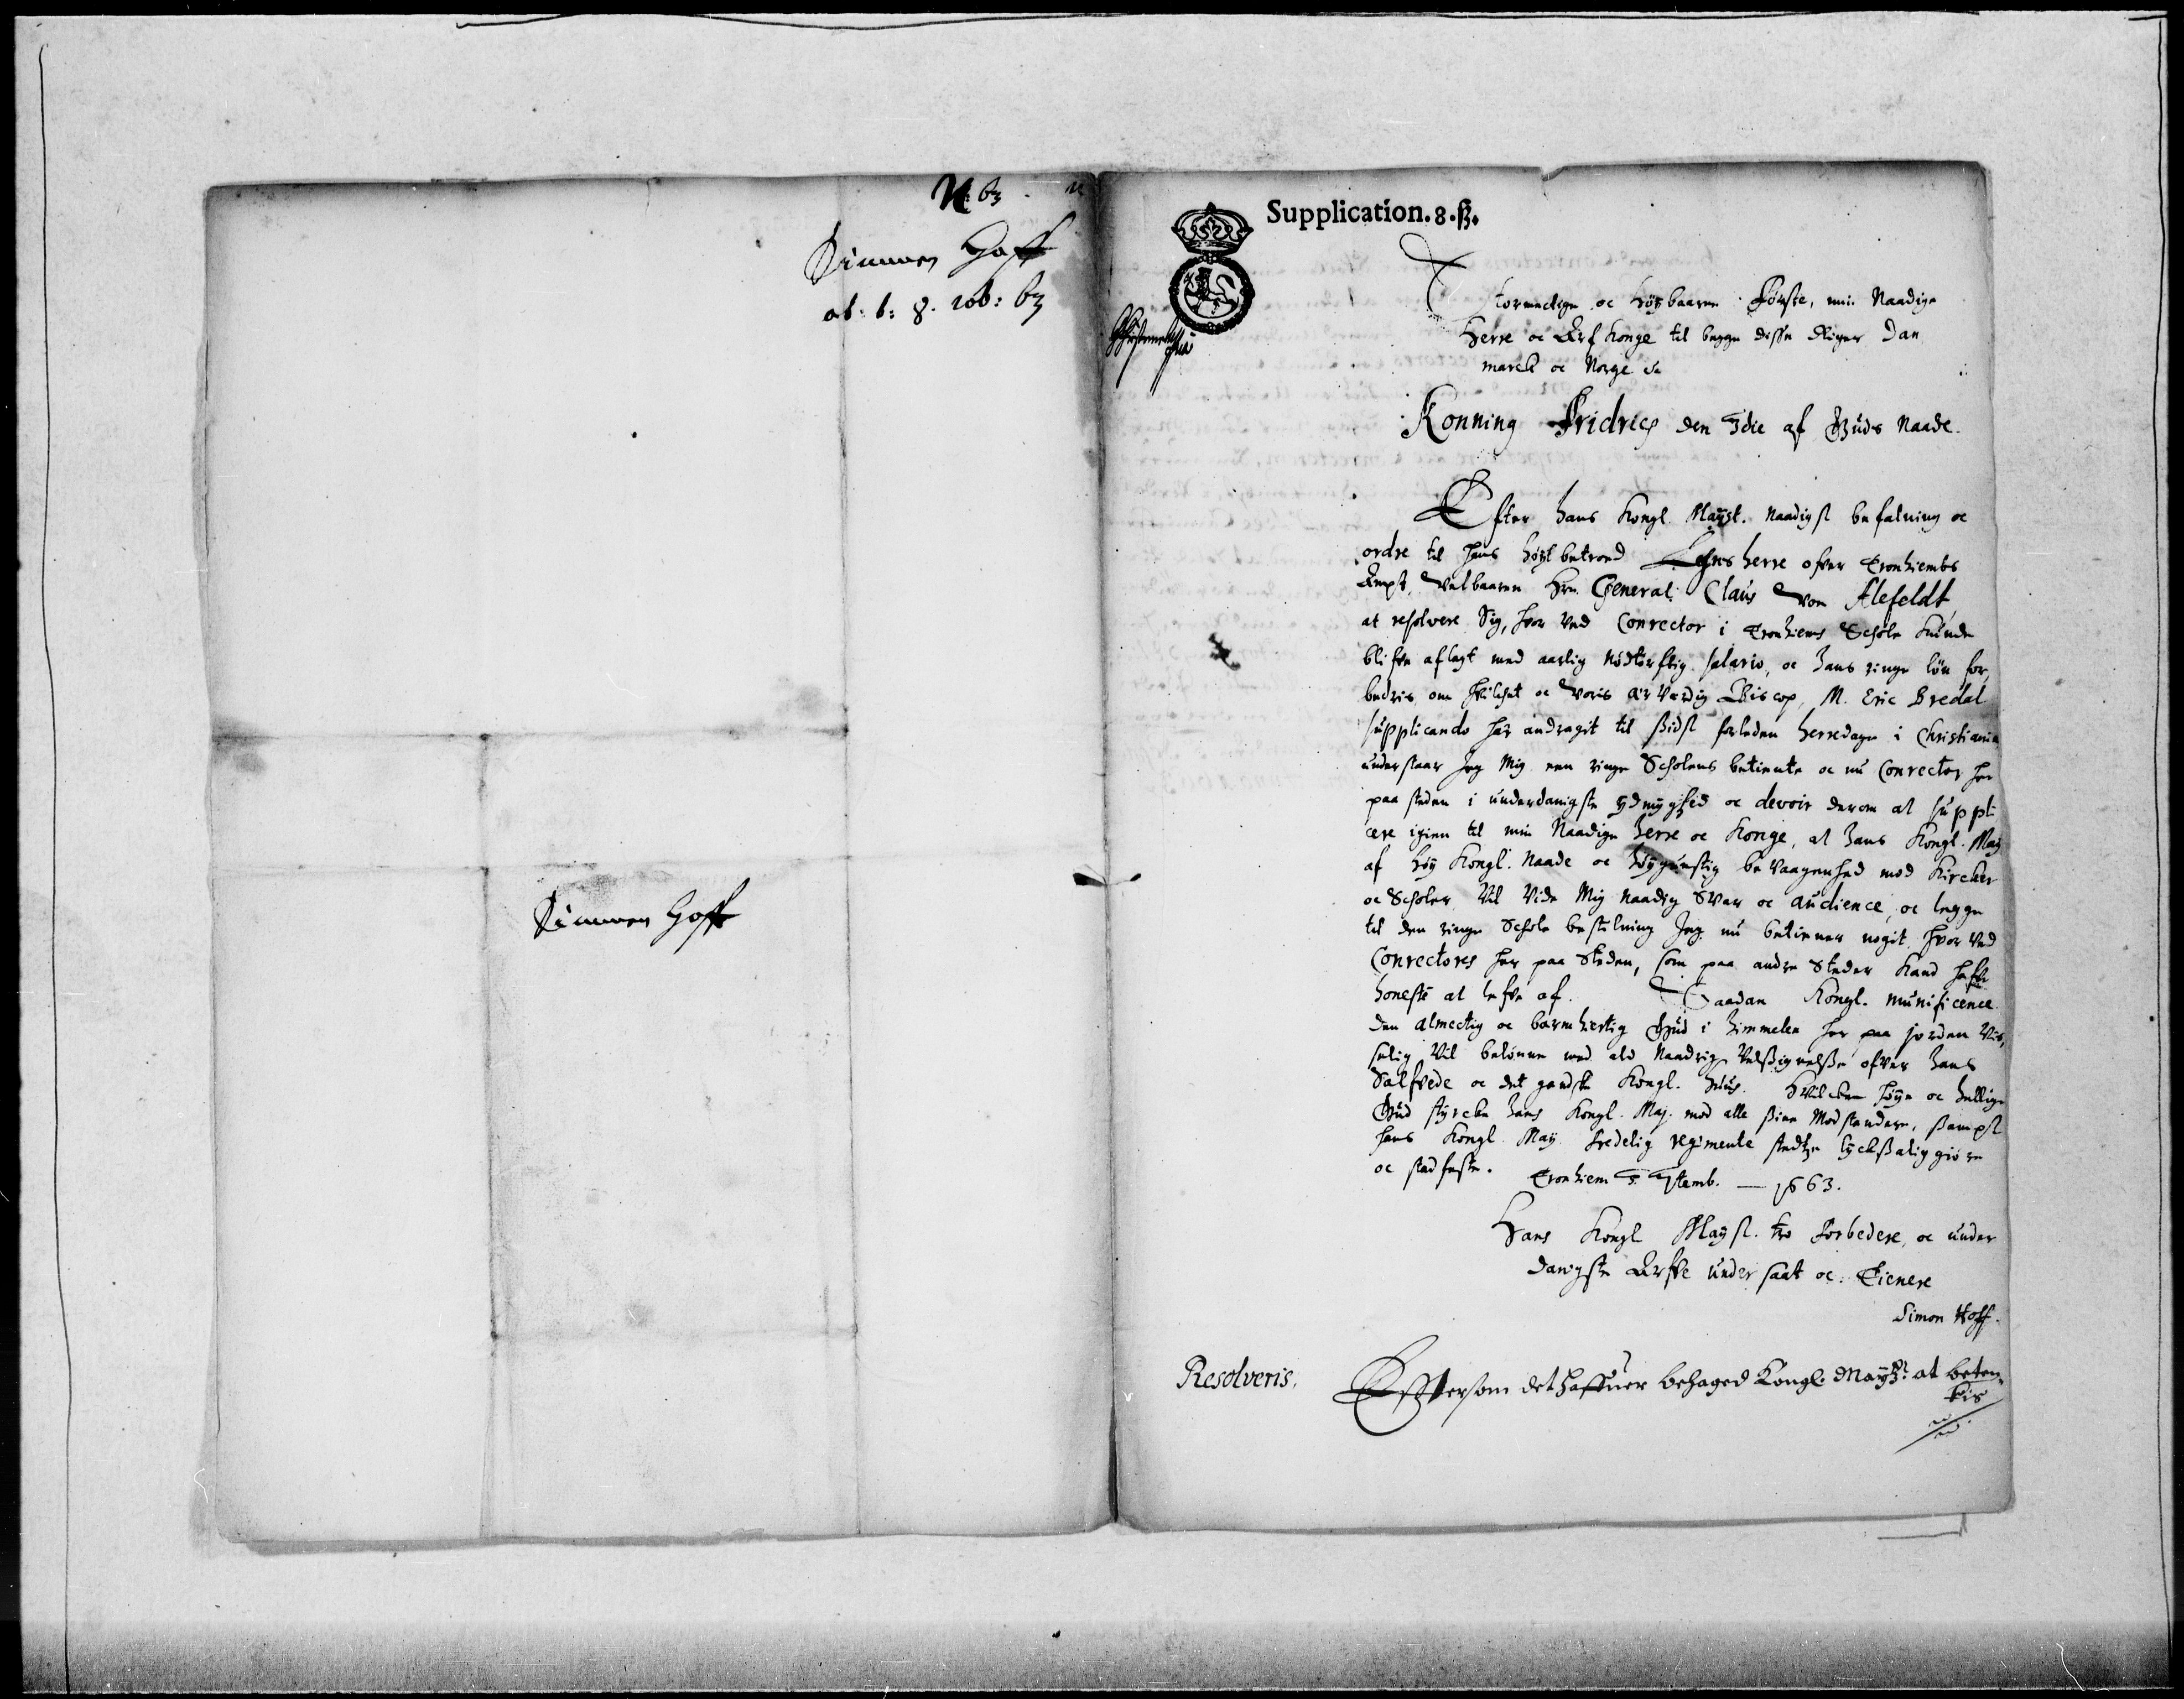 N. 63
Simmen Hoff
ab: 6: 8: 10b: 63
Simmen Hoff
Supplication. 8. ß.
Stormectige oc Høybaarne Første, min Naadige
Herre oc Erf Konge til begge disse Riger Dan
marck oc Norge etc
Konning Fridrich den 3die af Guds Naade.
Efter Hans Kongl. Mayst. Naadigst befalning oc
ordre til hans høyt betroed Lehns herre ofver Tronhiembs
Ampt, Velbaaren Hr. General Claus von Alefeldt,
at resolvere Sig, hvor ved Conrector i Tronhiems Schole kunde
blifve aflagt med aarlig nødtørftig salario, oc Hans ringe løn for,
bedris, om hvilchet oc voris ærværdig Biscop, M. Eric Bredal
supplicando har andragit til ßidst forleden herredage i Christiania
understaar Jeg Mig een ringe Scholens betiente oc nu Conrector her
paa steden i underdanigste ydmyghed oc devoir derom at suppli
cere igien til min Naadige Herre oc Konge, at Hans Kongl. May
af høy Kongl. Naade oc høygunstig bevaagenhed mod Kircker
oc Scholer, Vil Vide Mig naadig Svar oc audience, oc legge
til den ringe Schole bestelning Jeg nu betiener nogit hvor ved
Conrectores her paa Steden, som paa andre Steder Kand hafve
honeste at lefve af. Saadan Kongl. munificence
den almectig oc barmhiertig Gud i himmelen her paa jorden Vis,
selig Vil belønne med ald Naadrig Velßignelße ofver Hans
Salfvede oc det gandske Kongl. Huus. Hvilcken høye oc hellige
Gud styrcke Hans Kongl. May. mod alle ßine Modstandere, ßampt
hans Kongl May fredelig regimente stedtze lyckßalig giøre
oc stadfeste. Tronhiem 3. 7temb. — 1663.
Hans Kongl Mayst. tro Forbedere, oc under
danigste Erfve undersaat oc Tienere
Simon Hoff.
Resolveris.
Effttersom det haffuer behaged Kongl. Maytz: at beten„
kis